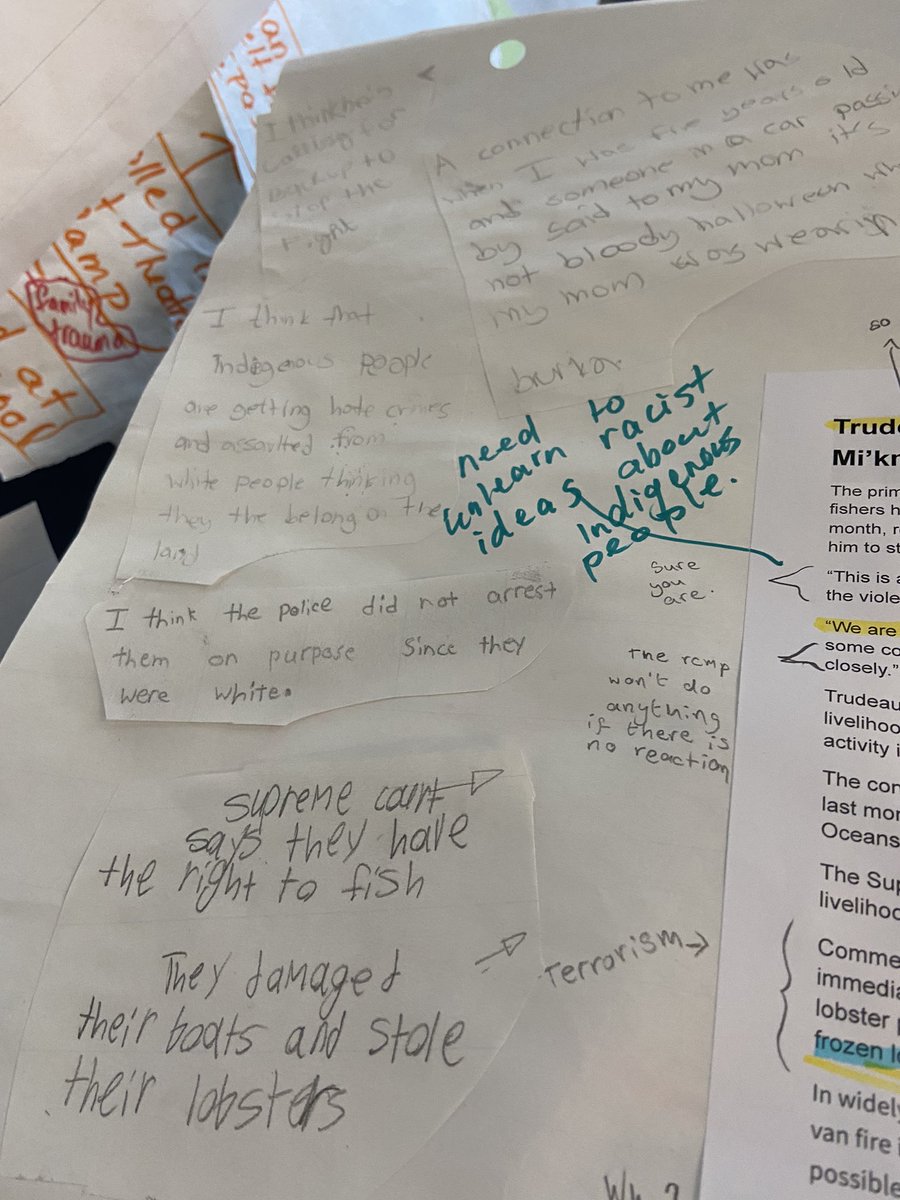 I think he's
calling for
backup to
stop the
fight
A connection to me was
when I was five years old
and someone in a car passi
by said to my mom it's
not bloody halloween wh
my mom was wearin
burka
family
trauma
at
I think that
Indigenous People
are getting hate crimes
and assaulted from
white people thinking
they the belong on the
land
need to
unlearn racist
ideas about
indigenous
people.
I think the police did not arrest
them on purpose since they
were white.
sure
you
are.
The rcmp
won't do
anything
if there is
no reaction
supreme court
says they have
the right to fish
They damaged
their boats and stole
their lobsters
Terrorism
so
Trude
Mi'kr
The prim
fishers h
month, r
him to st
"This is a
the viole
"We are
some co
closely."
Trudeau
livelihoo
activity i
The con
last mor
Oceans
The Sup
livelihoo
Comme
immedia
lobster p
frozen lo
In widely
van fire i
possible